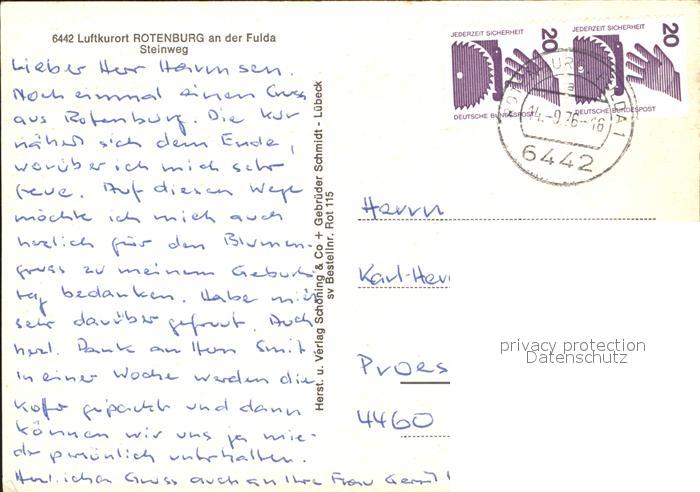 6442 Luftkurort ROTENBURG an der Fulda
Steinweg
Lieber Herr Harmsen.
Noch einmal einen Gruss
aus Rotenburg. Die Kur
nähert sich dem Ende,
worüber ich mich sehr
freue. Auf diesem Wege
möchte ich mich auch
herzlich für den Blumen-
gruss zu meinem Geburts-
tag bedanken. Habe mich
sehr darüber gefreut. Auch
herzl. Dank an Herrn Smit.
In einer Woche werden die
Koffer gepackt und dann
können wir uns ja wie-
der persönlich unterhalten.
Herzlichen Gruss auch an Ihre Frau
Herst. u. Verlag Schöning & Co + Gebrüder Schmidt - Lübeck
sv Bestellnr. Rot 115
JEDERZEIT SICHERHEIT
20
DEUTSCHE BUNDESPOST
JEDERZEIT SICHERHEIT
20
DEUTSCHE BUNDESPOST
14.-9.76-16
6442
Herrn
Karl-Her
Proes
4460
privacy protection
Datenschutz